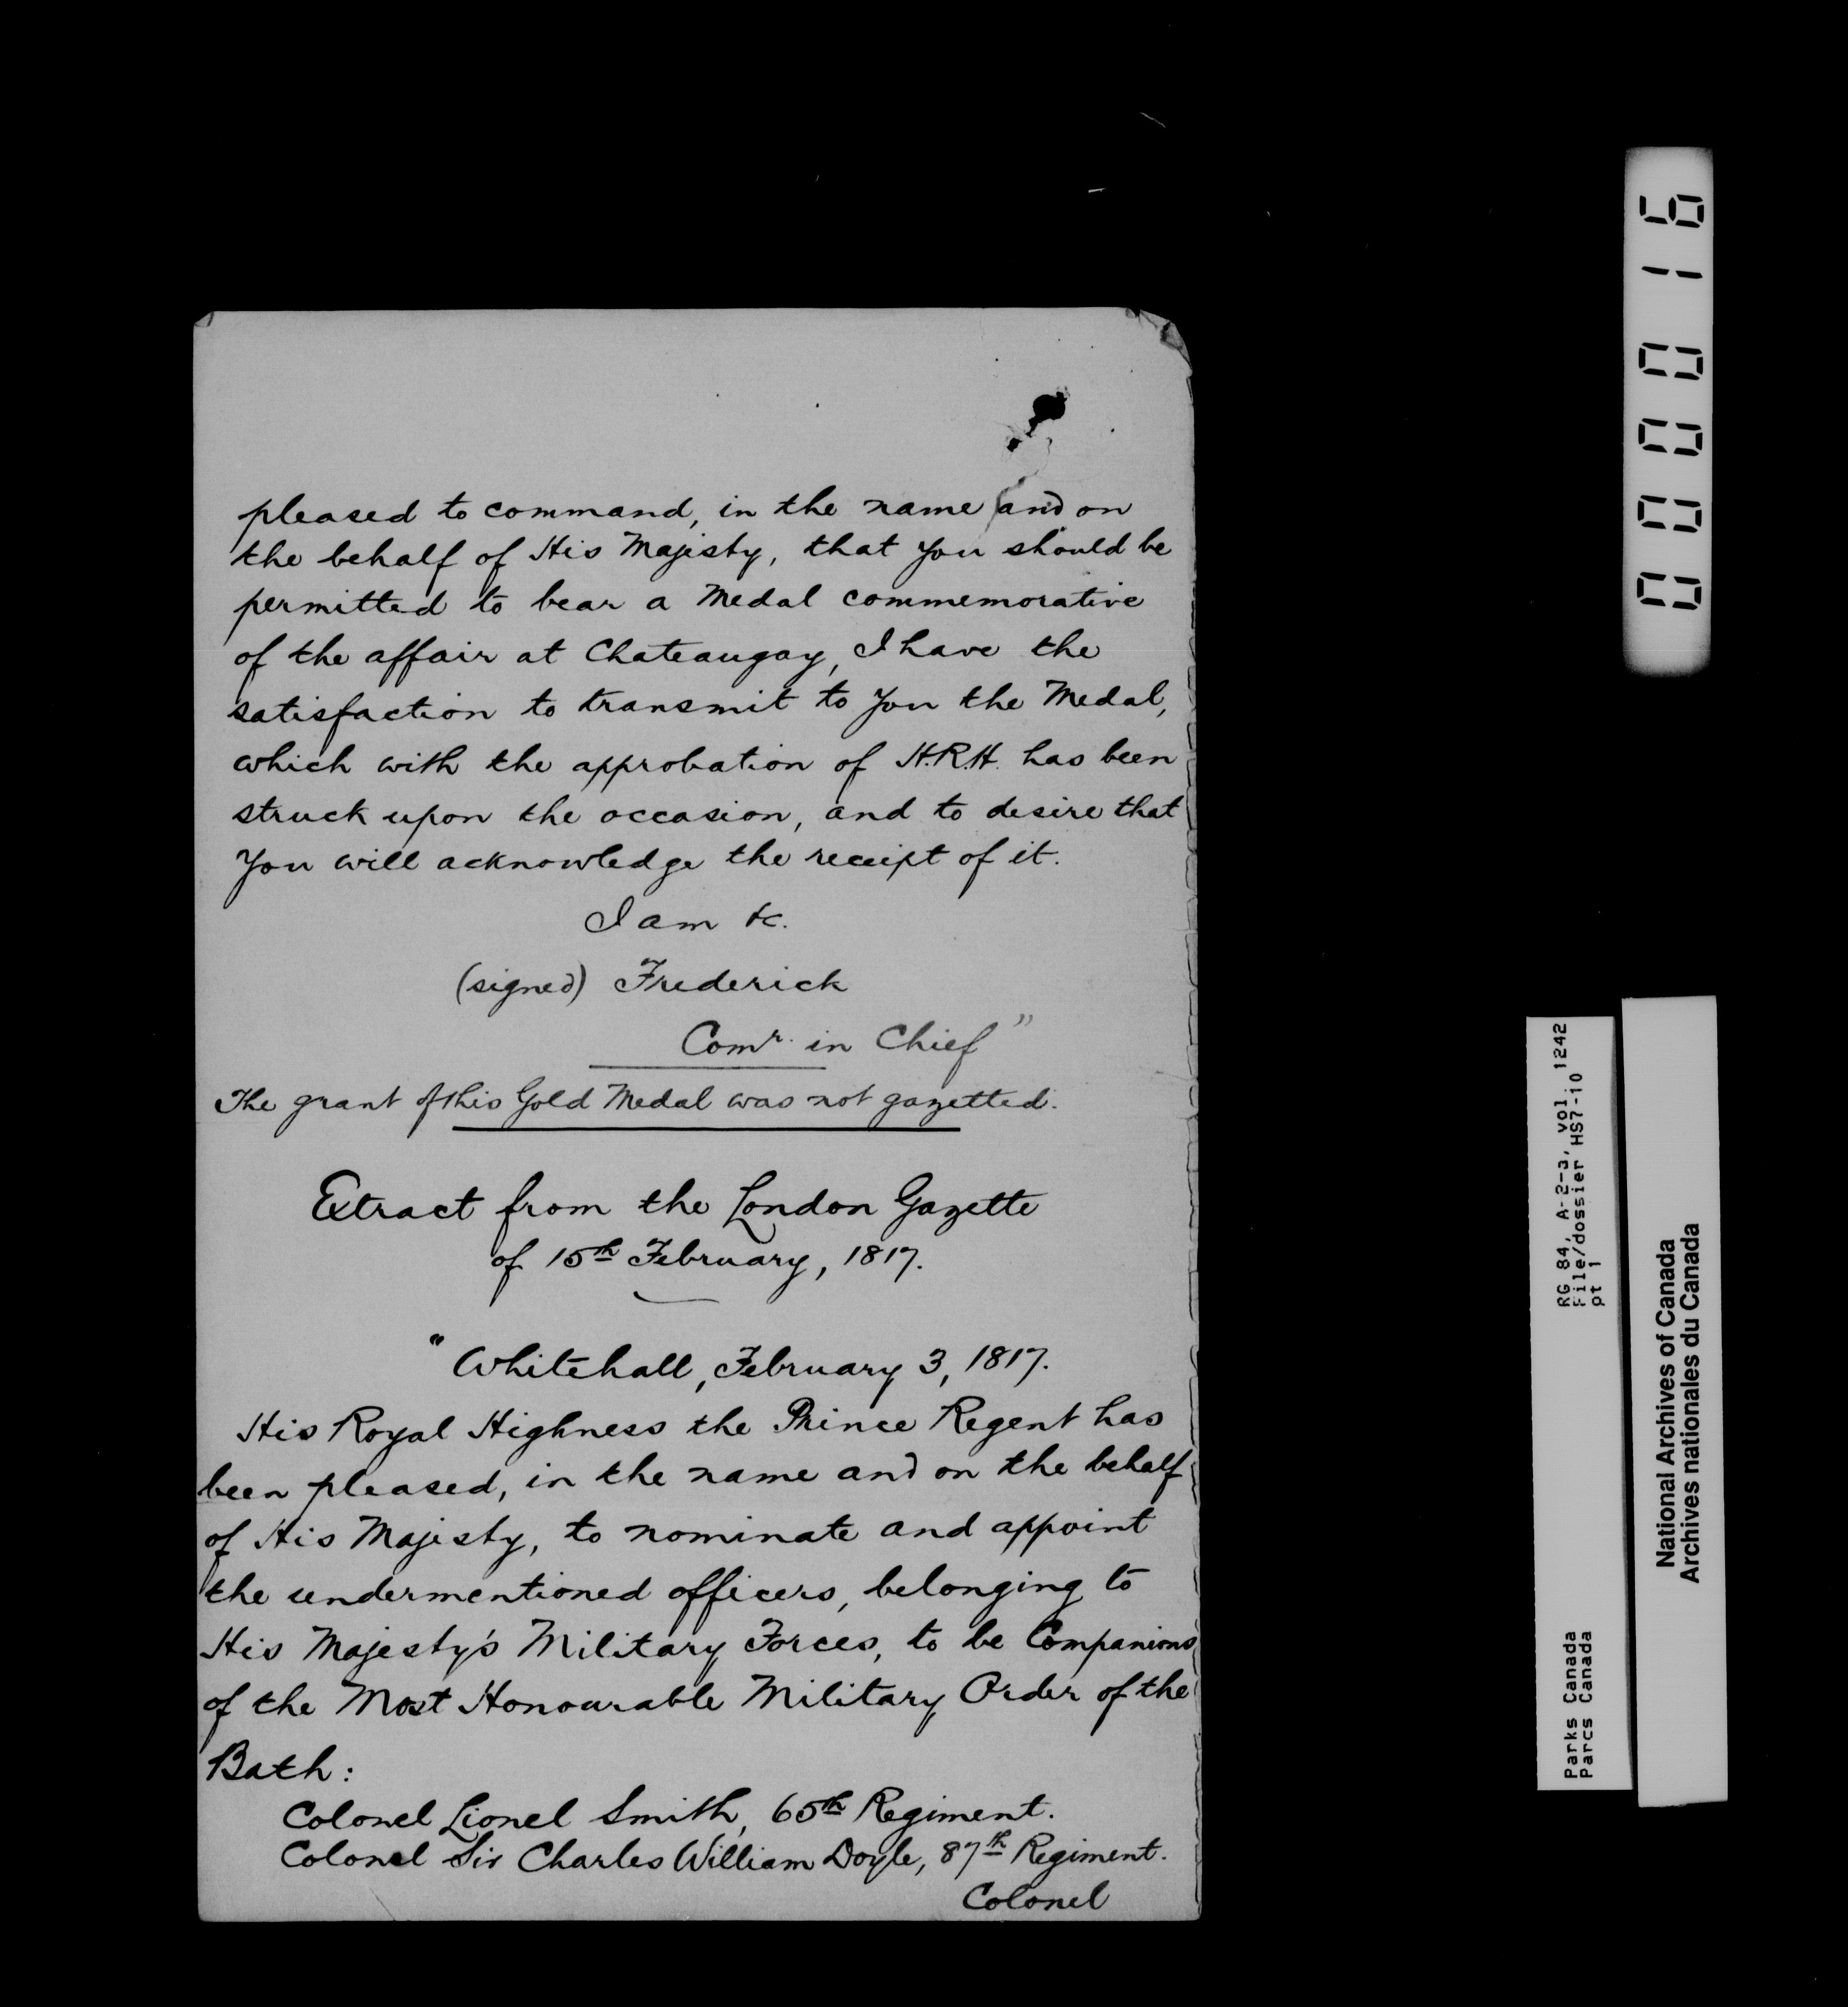 pleased to command, in the name and on
the behalf of His Majesty, that you should be
permitted to bear a Medal commemorative
of the affair at Chateaugay, I have the
satisfaction to transmit to You the Medal,
which with the approbation of H.R.H. has been
struck upon the occasion, and to desire that
You will acknowledge the receipt of it.
I am &c.
(signed) Frederick
Comr. in Chief"
The grant of this Gold Medal was not gazetted.
Extract from the London Gazette
of 15th February, 1817.
"Whitehall, February 3, 1817.
His Royal Highness the Prince Regent has
been pleased, in the name and on the behalf
of His Majesty, to nominate and appoint
the undermentioned officers, belonging to
His Majesty's Military Forces, to be Companions
of the Most Honourable Military Order of the
Bath:
Colonel Lionel Smith, 65th Regiment.
Colonel Sir Charles William Doyle, 87th Regiment.
Colonel
000016
RG 84, A-2-3, vol. 1242
File/dossier HS7-10
pt 1
Parks Canada
Parcs Canada
National Archives of Canada
Archives nationales du Canada